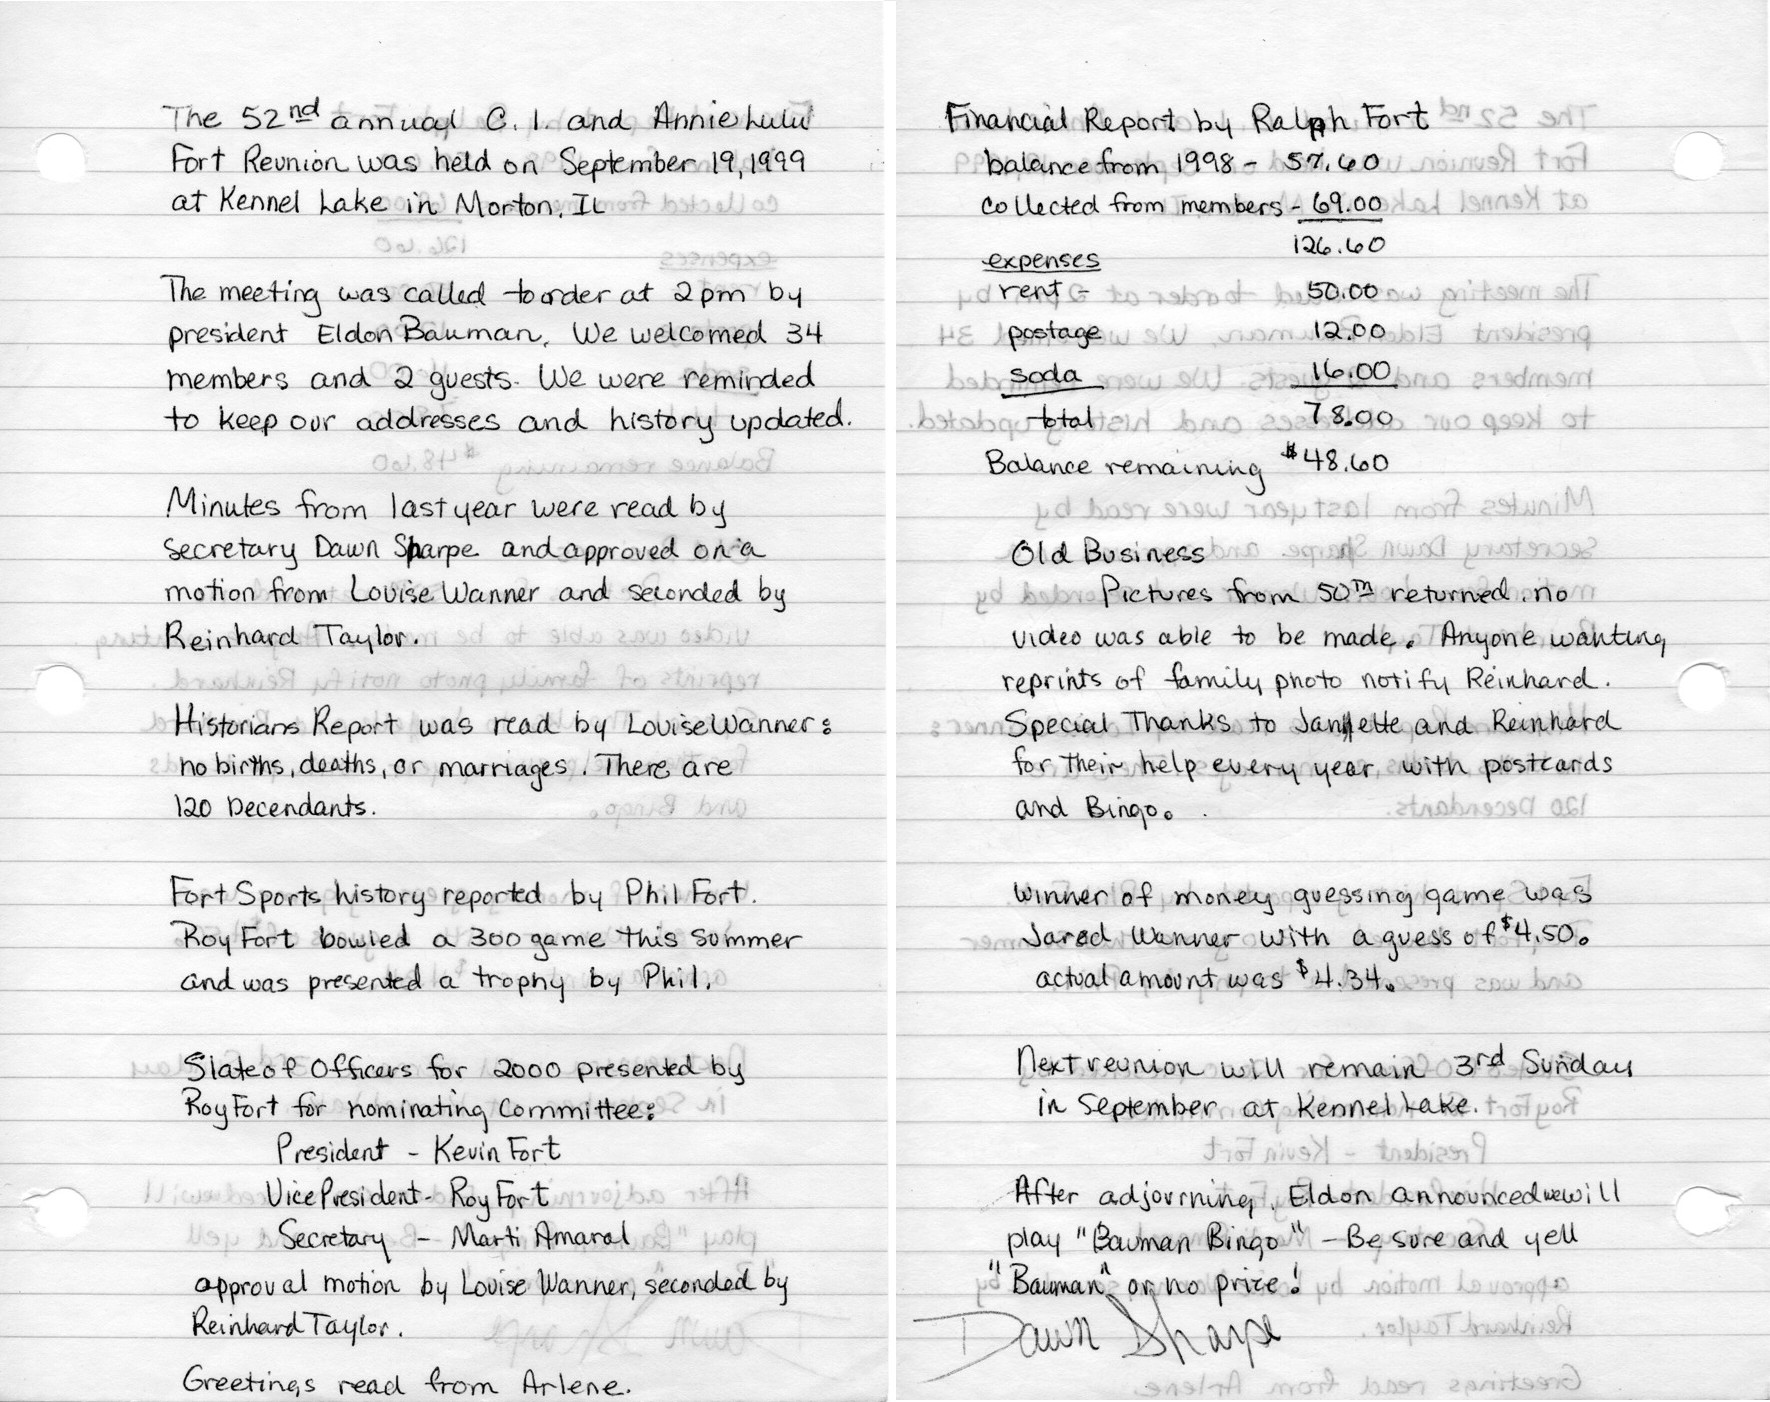 The 52nd annual C. I. and Annie Lulu
Fort Reunion was held on September 19, 1999
at Kennel Lake in Morton, IL
The meeting was called to order at 2pm by
president Eldon Bauman. We welcomed 34
members and 2 guests. We were reminded
to keep our addresses and history updated.
Minutes from last year were read by
secretary Dawn Sharpe and approved on a
motion from Louise Wanner and seconded by
Reinhard Taylor.
Historians Report was read by Louise Wanner:
no births, deaths, or marriages. There are
120 Decendants.
Fort Sports history reported by Phil Fort.
Roy Fort bowled a 300 game this summer
and was presented a trophy by Phil.
Slate of Officers for 2000 presented by
Roy Fort for nominating Committee:
President - Kevin Fort
Vice President - Roy Fort
Secretary - Marti Amaral
approval motion by Louise Wanner, seconded by
Reinhard Taylor.
Greetings read from Arlene.
Financial Report by Ralph Fort
balance from 1998 - 57.60
collected from members - 69.00
126.60
expenses
rent - 50.00
postage 12.00
soda 16.00
total 78.00
Balance remaining $48.60
Old Business
Pictures from 50TH returned. no
video was able to be made. Anyone wanting
reprints of family photo notify Reinhard.
Special Thanks to Janette and Reinhard
for their help every year with postcards
and Bingo.
Winner of money guessing game was
Jared Wanner with a guess of $4.50.
actual amount was $4.34.
Next reunion will remain 3rd Sunday
in September at Kennel Lake.
After adjourning, Eldon announced we will
play "Bauman Bingo" - Be sure and yell
"Bauman" or no prize!
Dawn Sharpe